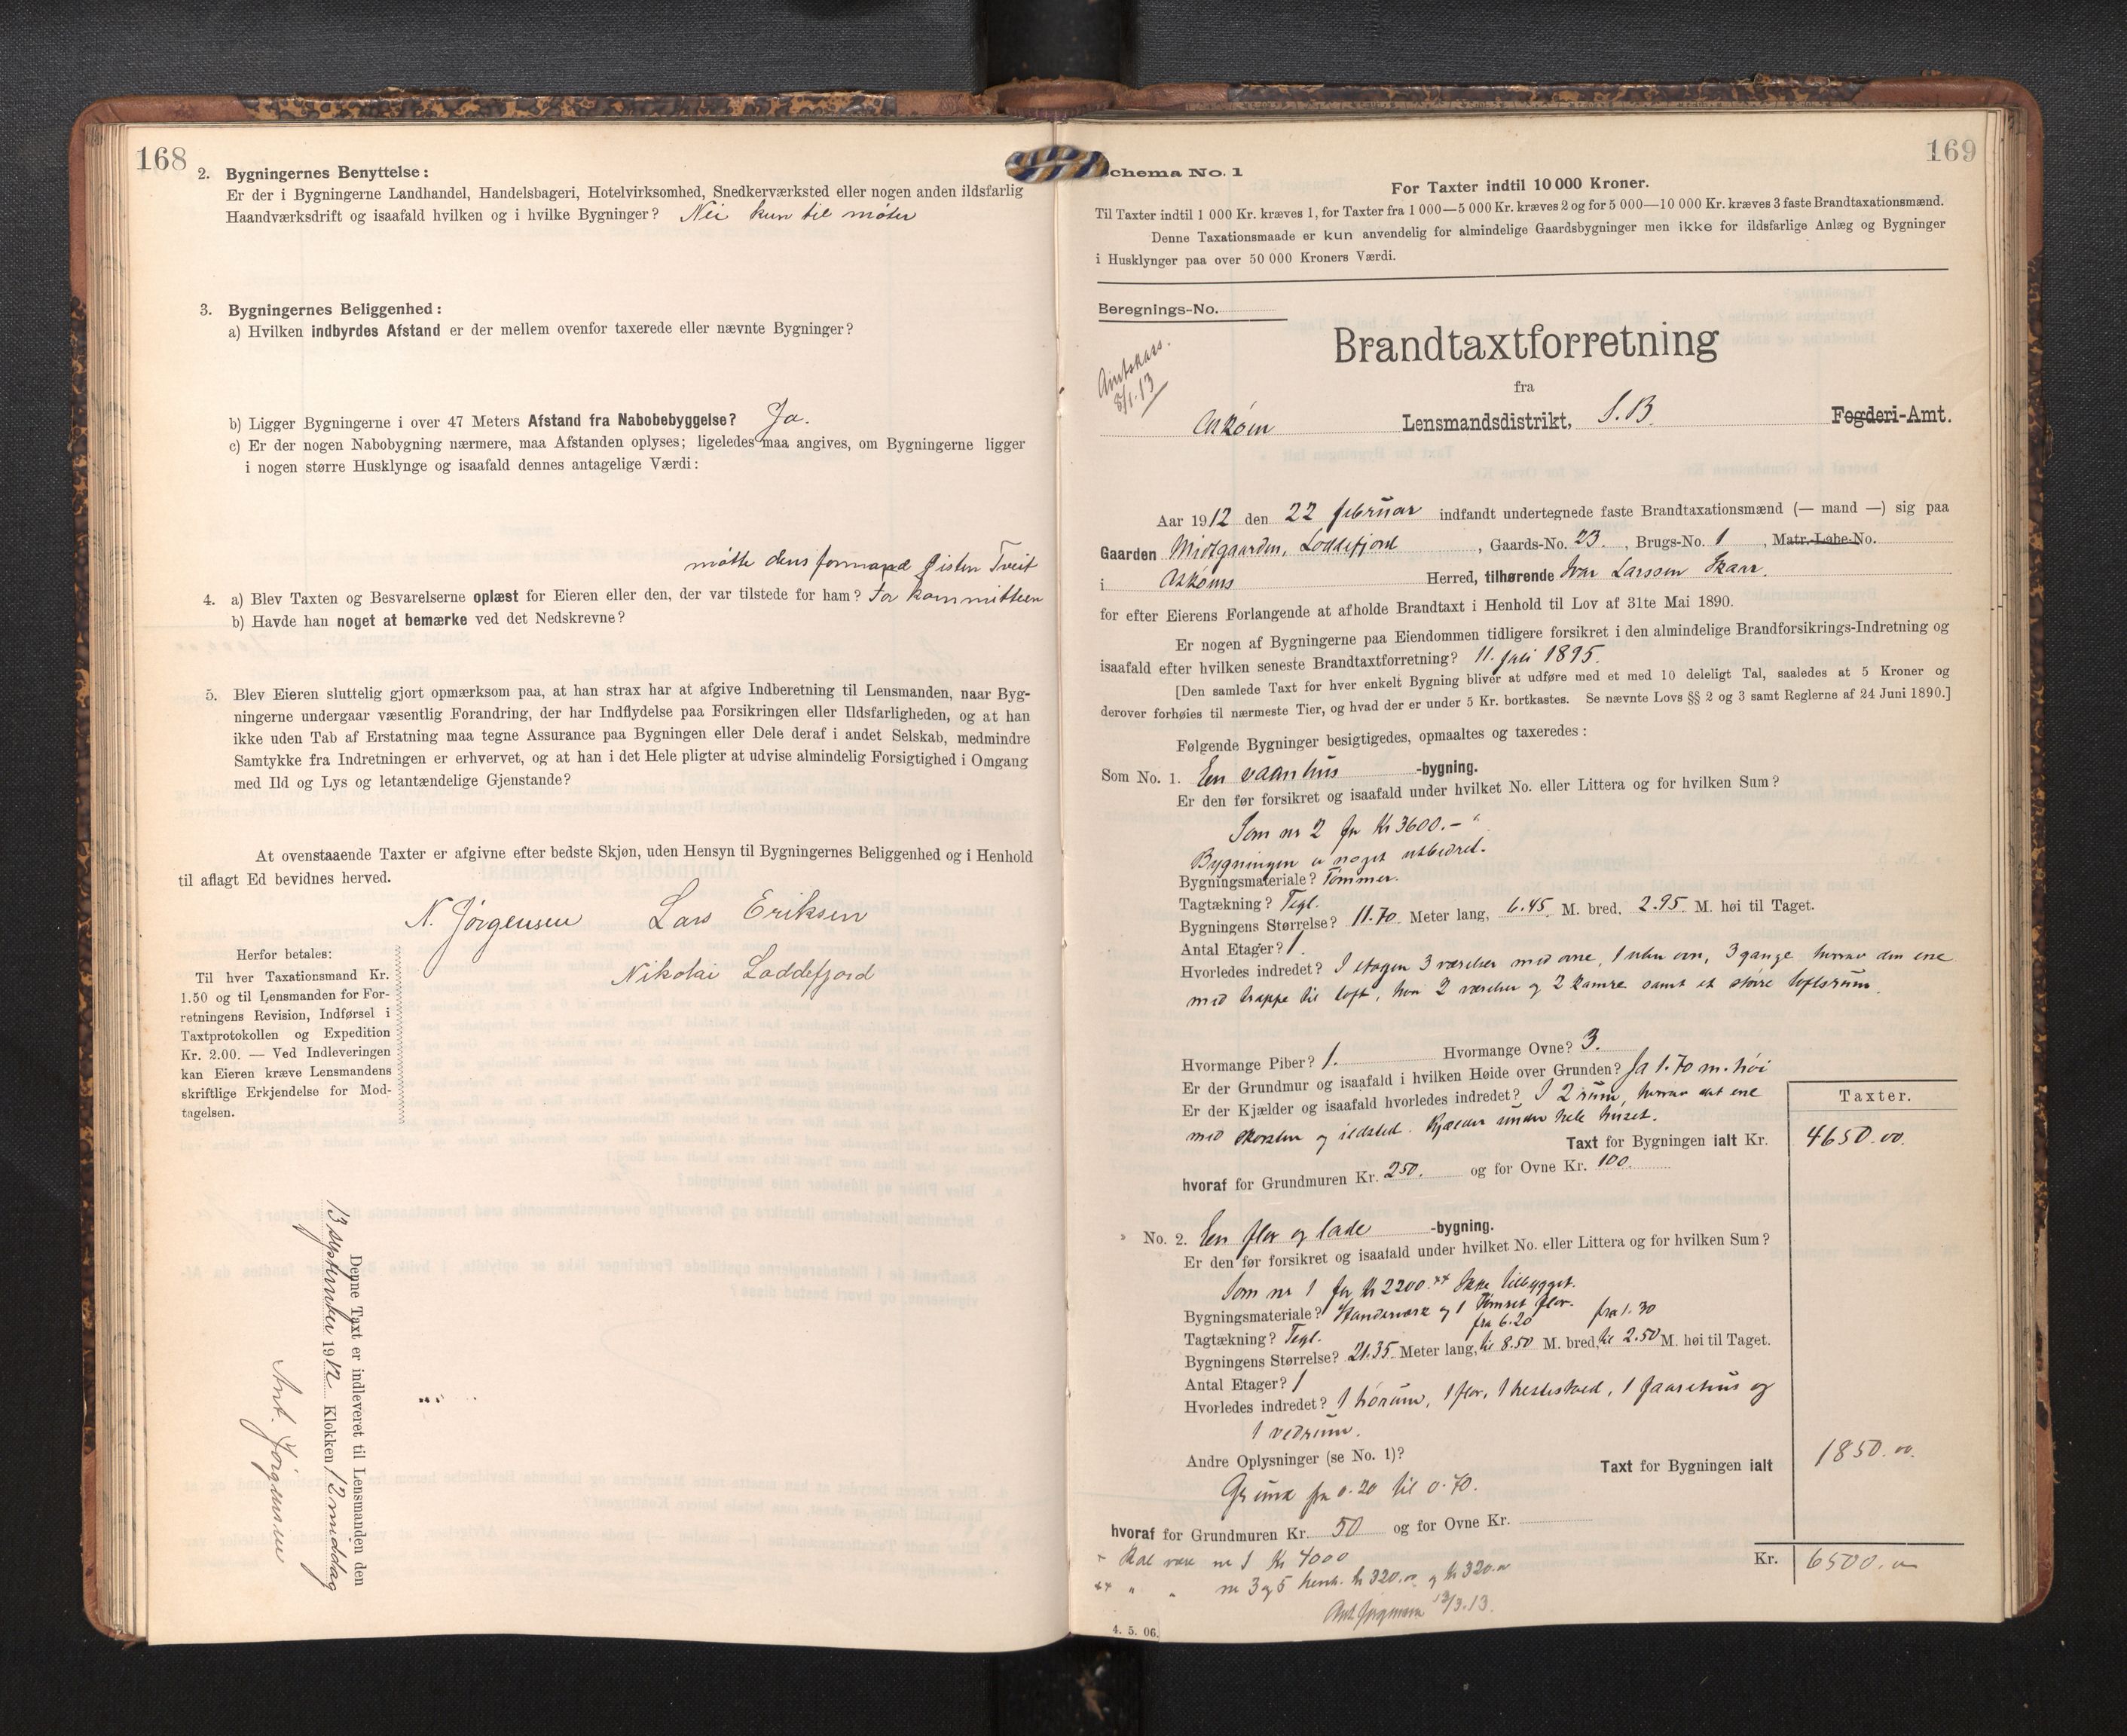 168
2. Bygningernes Benyttelse:
Er der i Bygningerne Landhandel, Handelsbageri, Hotelvirksomhed, Snedkerværksted eller nogen anden ildsfarlig
Haandværksdrift og isaafald hvilken og i hvilke Bygninger? Nei kun til møter
3. Bygningernes Beliggenhed:
a) Hvilken indbyrdes Afstand er der mellem ovenfor taxerede eller nævnte Bygninger?
b) Ligger Bygningerne i over 47 Meters Afstand fra Nabobebyggelse? Ja.
c) Er der nogen Nabobygning nærmere, maa Afstanden oplyses; ligeledes maa angives, om Bygningerne ligger
i nogen større Husklynge og isaafald dennes antagelige Værdi:
møtte dens formand Tveit
4. a) Blev Taxten og Besvarelserne oplæst for Eieren eller den, der var tilstede for ham? For kommitteen
b) Havde han noget at bemærke ved det Nedskrevne?
5. Blev Eieren sluttelig gjort opmærksom paa, at han strax har at afgive Indberetning til Lensmanden, naar Byg-
ningerne undergaar væsentlig Forandring, der har Indflydelse paa Forsikringen eller Ildsfarligheden, og at han
ikke uden Tab af Erstatning maa tegne Assurance paa Bygningen eller Dele deraf i andet Selskab, medmindre
Samtykke fra Indretningen er erhvervet, og at han i det Hele pligter at udvise almindelig Forsigtighed i Omgang
med Ild og Lys og letantændelige Gjenstande?
At ovenstaaende Taxter er afgivne efter bedste Skjøn, uden Hensyn til Bygningernes Beliggenhed og i Henhold
til aflagt Ed bevidnes herved.
N. Jørgensen Lars Eriksen
Nikolai Loddefjord
Herfor betales:
Til hver Taxationsmand Kr.
1.50 og til Lensmanden for For-
retningens Revision, Indførsel i
Taxtprotokollen og Expedition
Kr. 2.00. — Ved Indleveringen
kan Eieren kræve Lensmandens
skriftlige Erkjendelse for Mod-
tagelsen.
Denne Taxt er indleveret til Lensmanden den
13 september 1912 Klokken 12 middag
Ant. Jørgensen
169
chema No. 1
For Taxter indtil 10 000 Kroner.
Til Taxter indtil 1 000 Kr. kræves 1, for Taxter fra 1 000—5 000 Kr. kræves 2 og for 5 000—10 000 Kr. kræves 3 faste Brandtaxationsmænd.
Denne Taxationsmaade er kun anvendelig for almindelige Gaardsbygninger men ikke for ildsfarlige Anlæg og Bygninger
i Husklynger paa over 50 000 Kroners Værdi.
Beregnings-No.
8/1.13
Brandtaxtforretning
fra
Askøen Lensmandsdistrikt, S.B Fogderi-Amt.
Aar 1912 den 22 februar indfandt undertegnede faste Brandtaxationsmænd (— mand —) sig paa
Gaarden Midtgaarden, Loddefjord, Gaards-No. 23., Brugs-No. 1, Matr.-Løbe-No.
i Askøens Herred, tilhørende Ivar Larssen Skaar.
for efter Eierens Forlangende at afholde Brandtaxt i Henhold til Lov af 31te Mai 1890.
Er nogen af Bygningerne paa Eiendommen tidligere forsikret i den almindelige Brandforsikrings-Indretning og
isaafald efter hvilken seneste Brandtaxtforretning? 11. juli 1895.
[Den samlede Taxt for hver enkelt Bygning bliver at udføre med et med 10 deleligt Tal, saaledes at 5 Kroner og
derover forhøies til nærmeste Tier, og hvad der er under 5 Kr. bortkastes. Se nævnte Lovs §§ 2 og 3 samt Reglerne af 24 Juni 1890.]
Følgende Bygninger besigtigedes, opmaaltes og taxeredes:
Som No. 1. En vaanhus -bygning.
Er den før forsikret og isaafald under hvilket No. eller Littera og for hvilken Sum?
Som nr 2 for Kr 3600.-
Bygningen er noget utbedret.
Bygningsmateriale? Tømmer.
Tagtækning? Tegl.
Bygningens Størrelse? 11.70 Meter lang, 6.45 M. bred, 2.95 M. høi til Taget.
Antal Etager? 1.
Hvorledes indredet? I etagen 3 værelser med ovne, 1 uten ovn, 3 gange hvorav den ene
med trappe til loft, hvor 2 værelser og 2 kamre samt et større loftsrum.
Hvormange Piber? 1. Hvormange Ovne? 3.
Er der Grundmur og isaafald i hvilken Høide over Grunden? Ja 1.70 m. høi
Er der Kjælder og isaafald hvorledes indredet? I 2 rum, hvorav det ene
med skorsten og ildsted. Kjælder under hele huset.
Taxter.
Taxt for Bygningen ialt Kr. 4650.00.
hvoraf for Grundmuren Kr. 250. og for Ovne Kr. 100.
» No. 2. En flor og lade -bygning.
Er den før forsikret og isaafald under hvilket No. eller Littera og for hvilken Sum?
Som nr 1 for kr 2200. Ikke tilbygget.
Bygningsmateriale? Standerværk og 1 Tømret flor.
fra 6.20 fra 1.30
Tagtækning? Tegl.
Bygningens Størrelse? 21.35 Meter lang, til 8.50 M. bred, til 2.50 M. høi til Taget.
Antal Etager? 1
Hvorledes indredet? 1 hørum, 1 flor, 1 hestestald, 1 faarehus og
1 vedrum.
Andre Oplysninger (se No. 1)?
Taxt for Bygningen ialt 1850.00.
Grund fra 0.20 til 0.70.
hvoraf for Grundmuren Kr. 50 og for Ovne Kr.
Skal være nr 1 Kr 4000
Kr. 6500.00
" " nr 3 og 5 henh. kr 320.00 og kr 320.00
Ant. Jørgensen 13/3.13.
4. 5. 06.